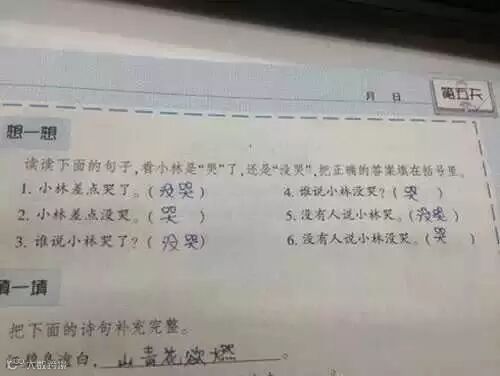 第五天
月 日
想一想
读读下面的句子，看小林是“哭”了，还是“没哭”，把正确的答案填在括号里。
1. 小林差点哭了。（没哭）
4. 谁说小林没哭？（哭）
2. 小林差点没哭。（哭）
5. 没有人说小林哭。（没哭）
3. 谁说小林哭了？（没哭）
6. 没有人说小林没哭。（哭）
填一填
把下面的诗句补充完整。
江碧鸟逾白，山青花欲燃。